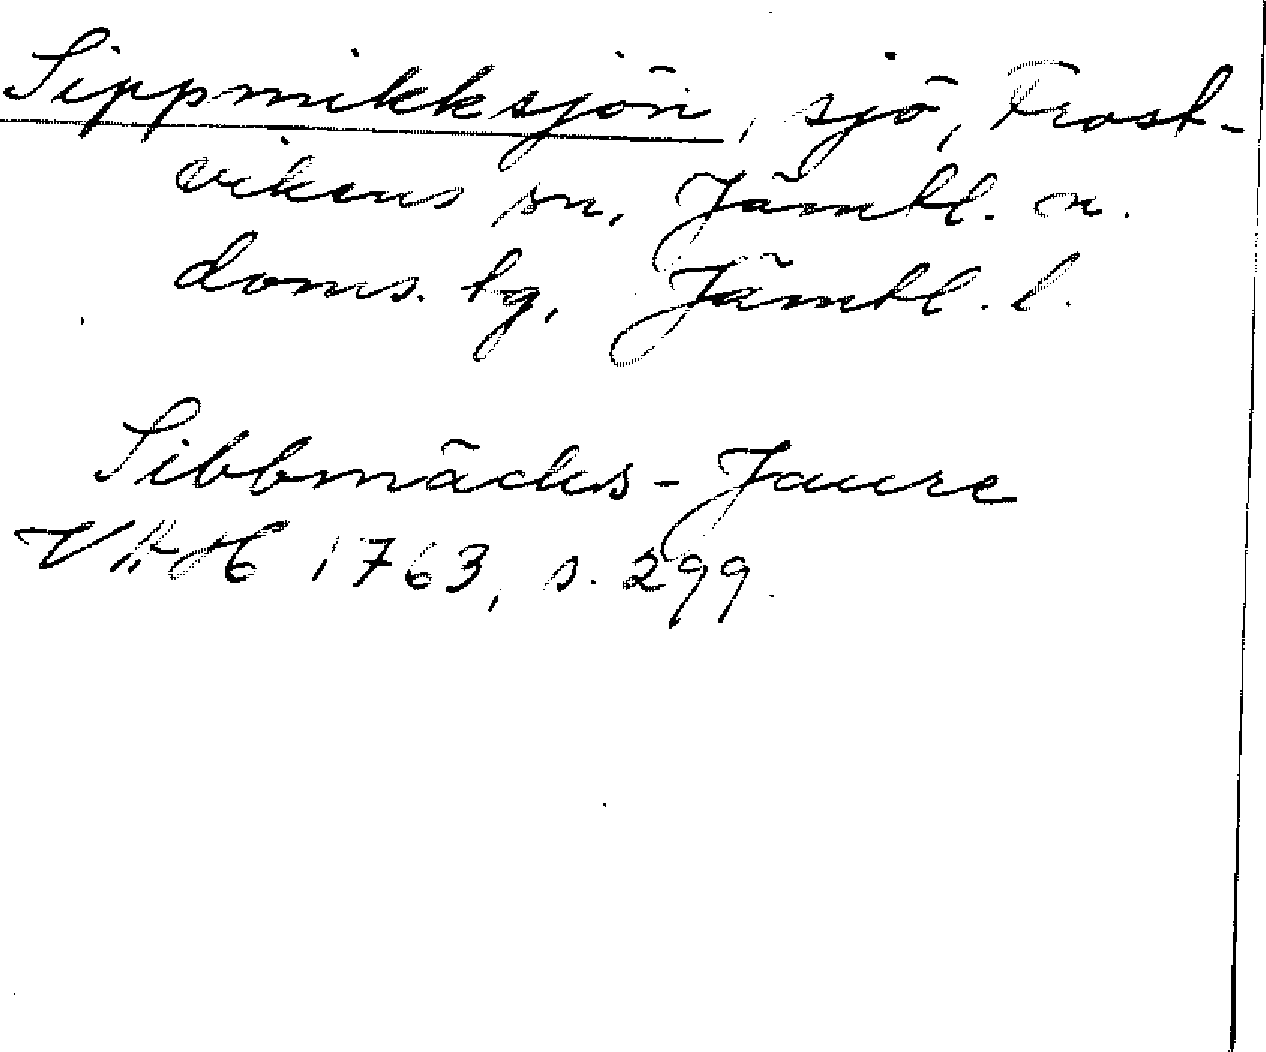 Sippmikksjön, sjö, Frost-
vikens sn, Jämtl. n.
doms. lg, Jämtl. l.
Sibbmäcks-Jaure
1763, s. 299